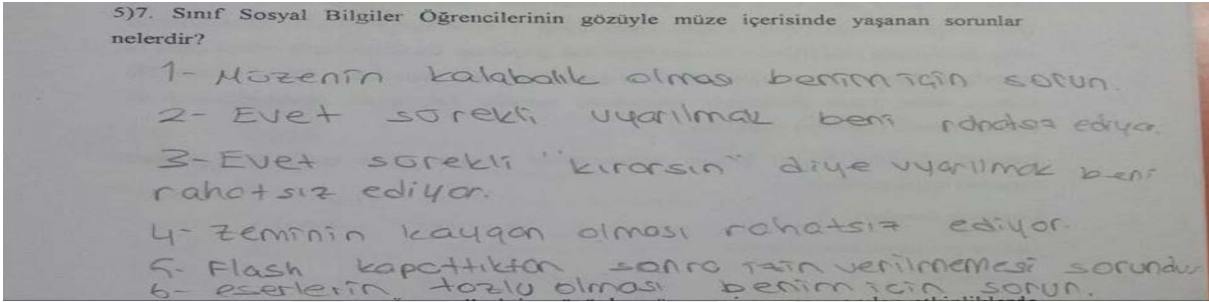 5)7. Sınıf Sosyal Bilgiler Öğrencilerinin gözüyle müze içerisinde yaşanan sorunlar
nelerdir?
1- Müzenin kalabalık olması benim için sorun.
2- Evet sürekli uyarılmak beni rahatsız ediyor.
3- Evet sürekli "kırarsın" diye uyarılmak beni
rahatsız ediyor.
4- zeminin kaygan olması rahatsız ediyor.
5- Flash kapattıktan sonra izin verilmemesi sorundur
6- eserlerin tozlu olması benim için sorun.